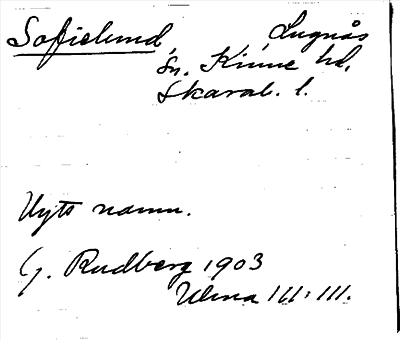 Sofielund, Lugnås
Sn. Kinne hd.
Skarab. l.
Nyts namn.
G. Rudberg 1903
Ulma 111:111.